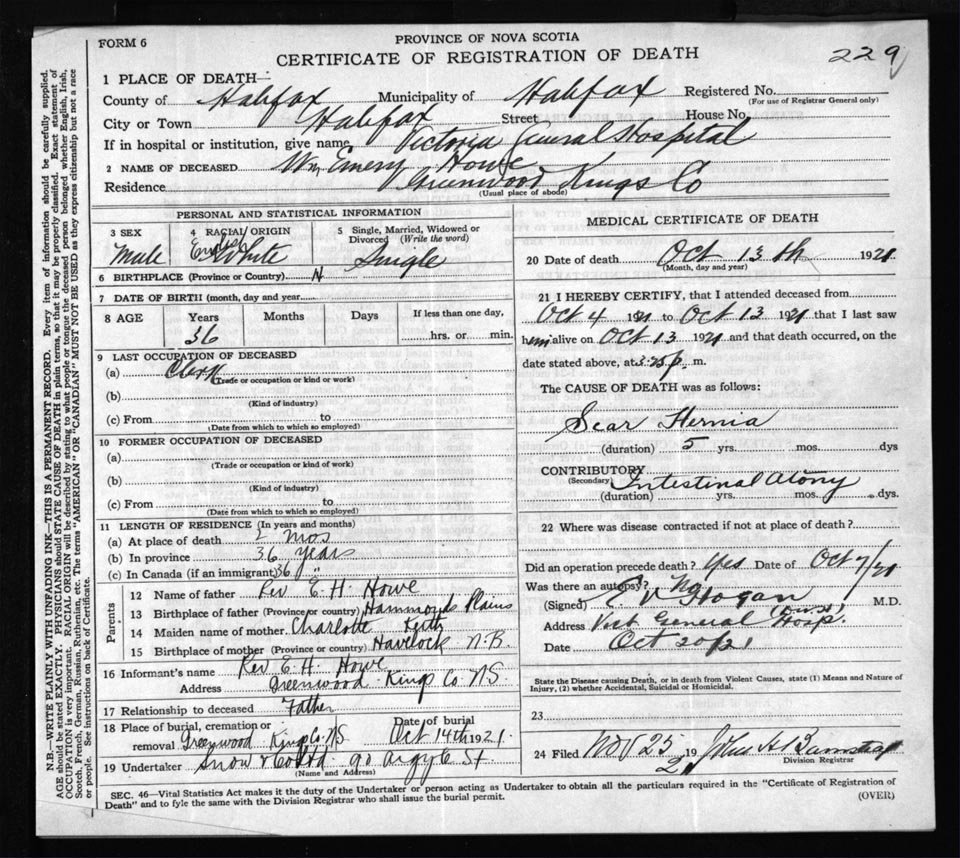 FORM 6
PROVINCE OF NOVA SCOTIA
CERTIFICATE OF REGISTRATION OF DEATH
229
1 PLACE OF DEATH—
County of Halifax Municipality of Halifax Registered No.
(For use of Registrar General only)
City or Town Halifax Street House No.
If in hospital or institution, give name Victoria General Hospital
2 NAME OF DECEASED Wm Emery Howe
Residence Greenwood Kings Co
(Usual place of abode)
PERSONAL AND STATISTICAL INFORMATION
3 SEX Male
4 RACIAL ORIGIN English White
5 Single, Married, Widowed or Divorced (Write the word) Single
6 BIRTHPLACE (Province or Country) N
7 DATE OF BIRTH (month, day and year
8 AGE Years 36 Months Days If less than one day, hrs. or min.
9 LAST OCCUPATION OF DECEASED
(a) Clerk
(Trade or occupation or kind or work)
(b)
(Kind of industry)
(c) From to
(Date from which to which so employed)
10 FORMER OCCUPATION OF DECEASED
(a)
(Trade or occupation or kind of work)
(b)
(Kind of industry)
(c) From to
(Date from which to which so employed)
11 LENGTH OF RESIDENCE (In years and months)
(a) At place of death 2 mos
(b) In province 36 years
(c) In Canada (if an immigrant) 36 "
Parents
12 Name of father Rev E. H. Howe
13 Birthplace of father (Province or country) Hammonds Plains
14 Maiden name of mother Charlotte Keith
15 Birthplace of mother (Province or country) Havelock N.B.
16 Informant's name Rev E. H. Howe
Address Greenwood Kings Co. N.S.
17 Relationship to deceased Father
18 Place of burial, cremation or removal Greenwood Kings Co. N.S Date of burial Oct 14th 1921.
19 Undertaker Snow & Co Ltd 90 Argyle St
(Name and Address)
MEDICAL CERTIFICATE OF DEATH
20 Date of death Oct 13th 1921.
(Month, day and year)
21 I HEREBY CERTIFY, that I attended deceased from
Oct 4 1921 to Oct 13 1921 that I last saw
him alive on Oct 13 1921 and that death occurred, on the
date stated above, at p. m.
The CAUSE OF DEATH was as follows:
Scar Hernia
(duration) 5 yrs. mos. days
CONTRIBUTORY
(Secondary) Intestinal Atony
(duration) yrs. mos. dys.
22 Where was disease contracted if not at place of death?
Did an operation precede death? Yes Date of Oct 7/21
Was there an autopsy? No
(Signed) Hogan M.D.
Address Vict General Hosp.
Date Oct 20/21
State the Disease causing Death, or in death from Violent Causes, state (1) Means and Nature of
Injury, (2) whether Accidental, Suicidal or Homicidal.
23
24 Filed Nov 25 1921 John H Barnstead
Division Registrar
SEC. 46—Vital Statistics Act makes it the duty of the Undertaker or person acting as Undertaker to obtain all the particulars required in the "Certificate of Registration of
Death" and to fyle the same with the Division Registrar who shall issue the burial permit.
(OVER)
N.B.—WRITE PLAINLY WITH UNFADING INK—THIS IS A PERMANENT RECORD. Every item of information should be carefully supplied.
AGE should be stated EXACTLY. PHYSICIANS should STATE CAUSE OF DEATH in plain terms, so that it may be properly classified. Exact statement of
OCCUPATION is very important. RACIAL ORIGIN will be described by stating to what people or tongue the deceased person belonged whether English, Irish,
Scotch, French, German, Russian, Ruthenian, etc. The terms "AMERICAN" OR "CANADIAN" MUST NOT BE USED as they express citizenship but not a race
or people. See instructions on back of Certificate.